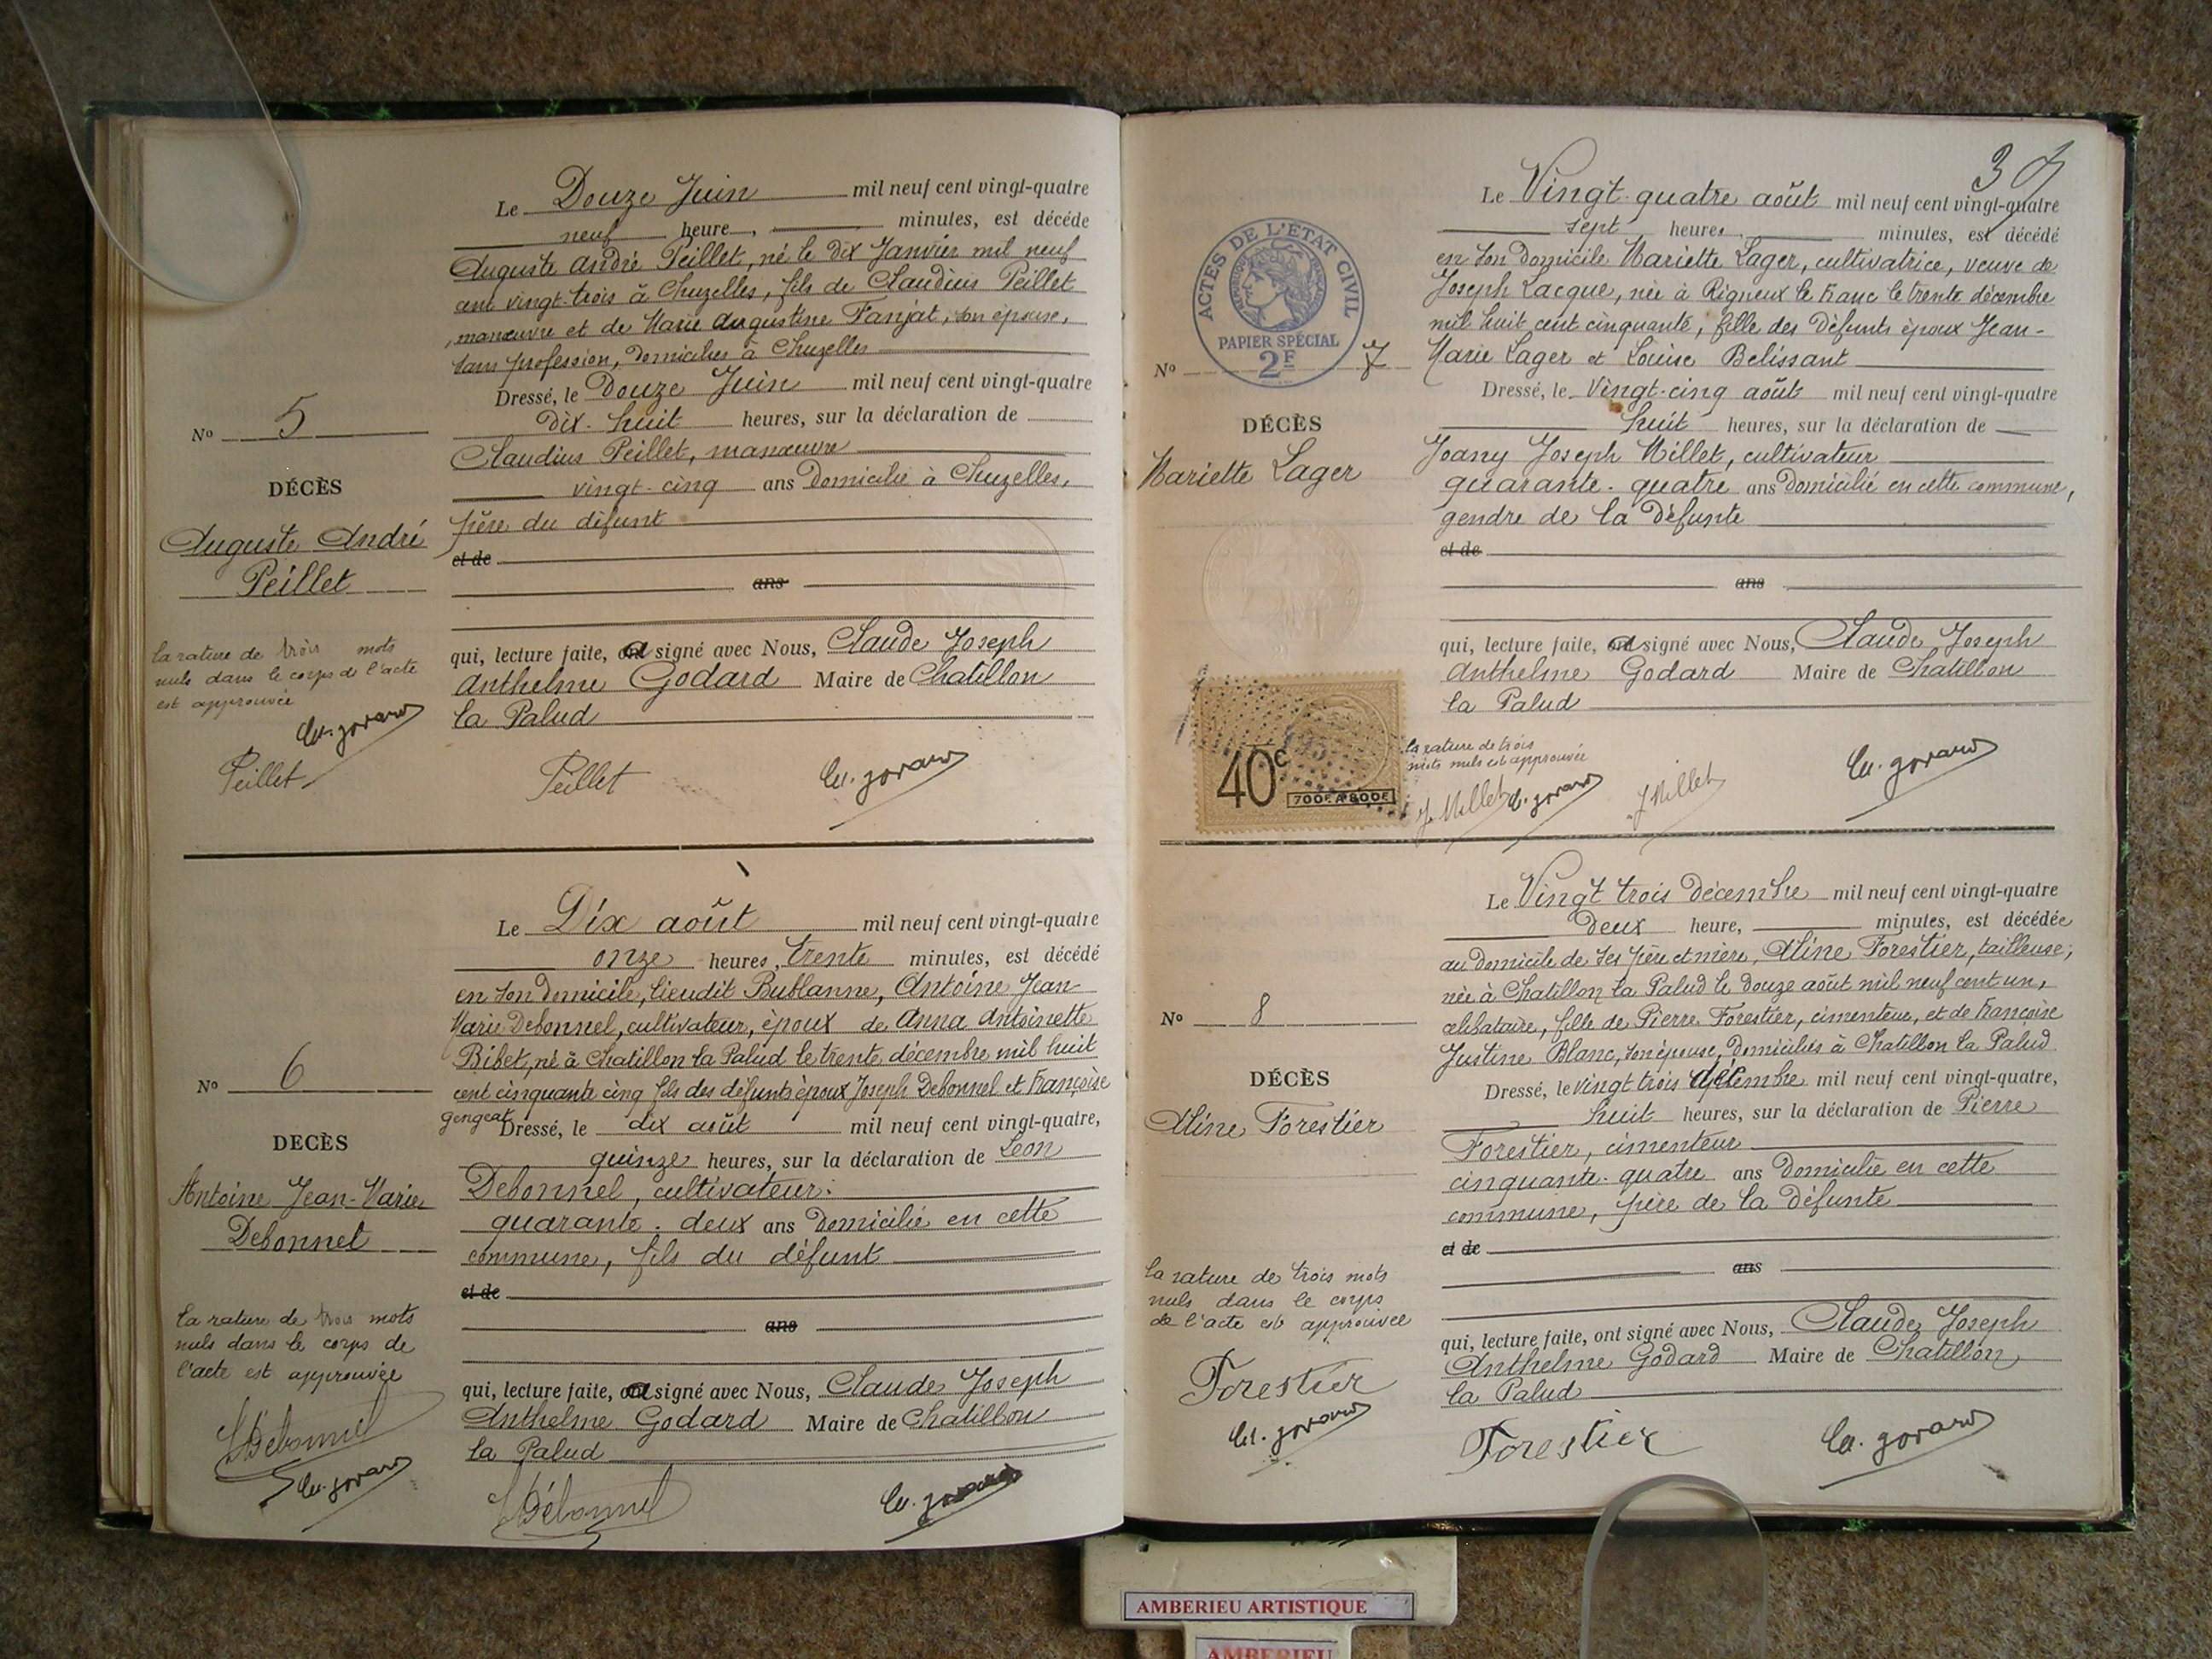 Le Douze Juin mil neuf cent vingt-quatre
neuf heure, minutes, est décédé
Auguste André Peillet, né le dix Janvier mil neuf
cent vingt-trois à Chuzelles, fils de Claudius Peillet
, manœuvre et de Marie Augustine Fanjat, son épouse,
sans profession, domiciliés à Chuzelles
Dressé, le Douze Juin mil neuf cent vingt-quatre
dix-huit heures, sur la déclaration de
Claudius Peillet, manœuvre
vingt-cinq ans Domicilié à Chuzelles,
père du défunt
et de
ans
qui, lecture faite, a signé avec Nous, Claude Joseph
Anthelme Godard Maire de Chatillon
la Palud
Peillet
Cl. Godard
No 5
DÉCÈS
Auguste André
Peillet
la rature de trois mots
nuls dans le corps de l'acte
est approuvée
Cl. Godard
Peillet
Le Dix août mil neuf cent vingt-quatre
onze heures, trente minutes, est décédé
en son domicile, lieudit Bublanne, Antoine Jean-
Marie Debonnel, cultivateur, époux de Anna Antoinette
Bibet, né à Chatillon la Palud le trente décembre mil huit
cent cinquante cinq fils des défunts époux Joseph Debonnel et Françoise
Gengeat
Dressé, le dix août mil neuf cent vingt-quatre,
quinze heures, sur la déclaration de Leon
Debonnel, cultivateur.
quarante-deux ans Domicilié en cette
commune, fils du défunt
et de
ans
qui, lecture faite, a signé avec Nous, Claude Joseph
Anthelme Godard Maire de Chatillon
la Palud
Debonnel
Cl. Godard
No 6
DECÈS
Antoine Jean-Marie
Debonnel
la rature de trois mots
nuls dans le corps de
l'acte est approuvée
Debonnel
Cl. Godard
3
Le Vingt-quatre août mil neuf cent vingt-quatre
sept heures, minutes, est décédé
en son domicile Mariette Lager, cultivatrice, veuve de
Joseph Lacque, née à Rigneux le Franc le trente décembre
mil huit cent cinquante, fille des défunts époux Jean-
Marie Lager et Louise Belissant
Dressé, le Vingt-cinq août mil neuf cent vingt-quatre
huit heures, sur la déclaration de
Joany Joseph Millet, cultivateur
quarante-quatre ans Domicilié en cette commune,
gendre de la défunte
et de
ans
qui, lecture faite, a signé avec Nous, Claude Joseph
Anthelme Godard Maire de Chatillon
la Palud
la rature de trois
mots nuls est approuvée
J. Millet Cl. Godard J Millet Cl. Godard
ACTES DE L'ÉTAT CIVIL
PAPIER SPÉCIAL
2F
No 7
DÉCÈS
Mariette Lager
40c
700F A 800F
Le Vingt trois décembre mil neuf cent vingt-quatre
deux heure, minutes, est décédée
au domicile de ses père et mère, Aline Forestier, tailleuse,
née à Chatillon la Palud le douze août mil neuf cent un,
célibataire, fille de Pierre Forestier, cimenteur, et de Françoise
Justine Blanc, son épouse, domiciliés à Chatillon la Palud
Dressé, le vingt trois décembre mil neuf cent vingt-quatre,
huit heures, sur la déclaration de Pierre
Forestier, cimenteur
cinquante-quatre ans Domicilié en cette
commune, père de la défunte
et de
ans
qui, lecture faite, ont signé avec Nous, Claude Joseph
Anthelme Godard Maire de Chatillon
la Palud
Forestier
Cl. Godard
No 8
DÉCÈS
Aline Forestier
la rature de trois mots
nuls dans le corps
de l'acte est approuvée
Forestier
Cl. Godard
AMBERIEU ARTISTIQUE
AMBERIEU